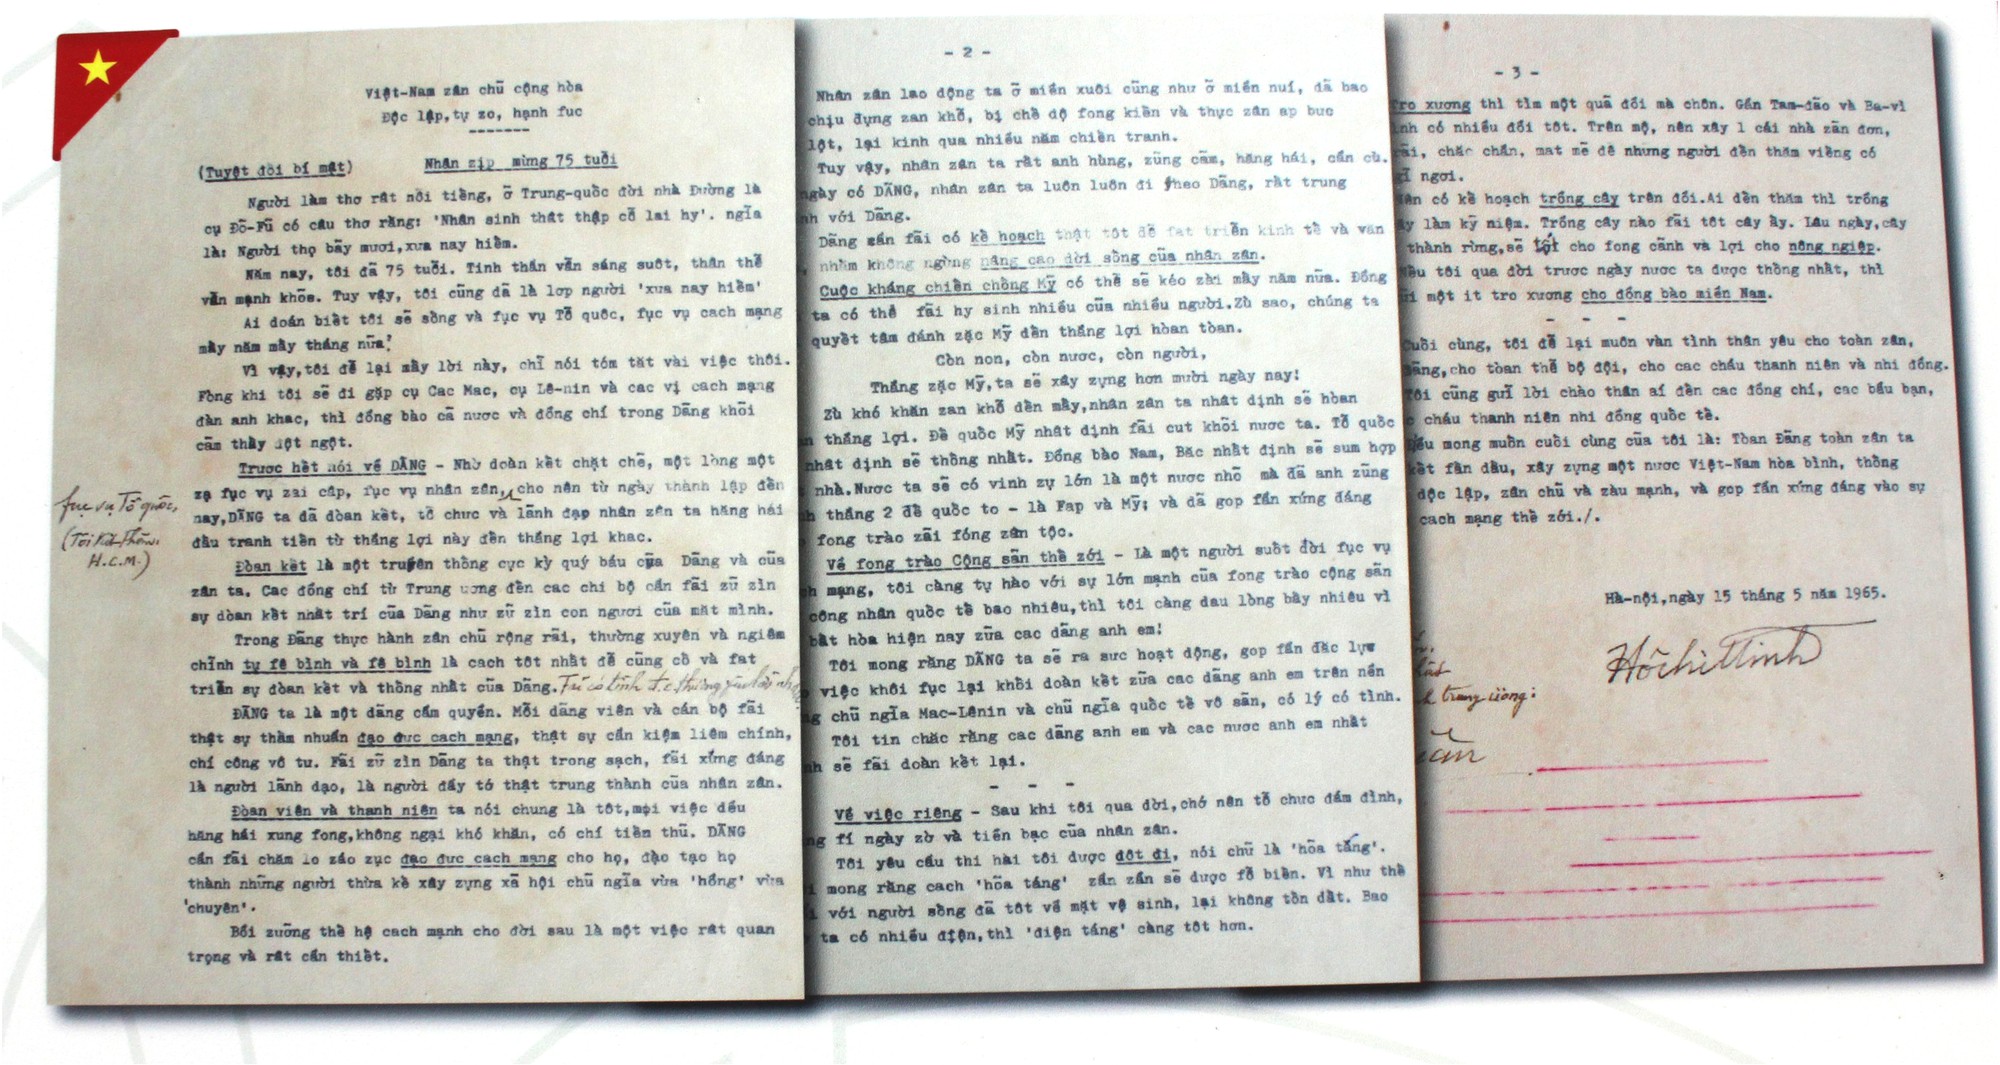 Việt-Nam zân chủ cộng hòa
Độc lập,tự zo, hạnh fuc
-------
(Tuyệt đối bí mật) Nhân zịp mừng 75 tuổi
Người làm thơ rất nổi tiếng, ở Trung-quốc đời nhà Đường là
cụ Đỗ-Fủ có câu thơ rằng: 'Nhân sinh thất thập cổ lai hy'. ngĩa
là: Người thọ bẩy mươi,xưa nay hiếm.
Năm nay, tôi đã 75 tuổi. Tinh thần vẫn sáng suốt, thân thể
vẫn mạnh khỏe. Tuy vậy, tôi cũng đã là lơp người 'xưa nay hiếm'
Ai đoán biết tôi sẽ sống và fục vụ Tổ quốc, fục vụ cach mạng
mấy năm mấy tháng nữa!
Vì vậy,tôi để lại mấy lời này, chỉ nói tóm tắt vài việc thôi.
Fòng khi tôi sẽ đi gặp cụ Cac Mac, cụ Lê-nin và cac vị cach mạng
đàn anh khac, thì đồng bào cả nươc và đồng chí trong Đảng khỏi
cảm thấy đột ngột.
Trươc hết nói về ĐẢNG - Nhờ đoàn kết chặt chẽ, một lòng một
zạ fục vụ zai cấp, fục vụ nhân zân, cho nên từ ngày thành lập đến
fục vụ Tổ quốc,
nay,ĐẢNG ta đã đoàn kết, tổ chưc và lãnh đạo nhân zân ta hăng hái
H.C.M.)
đấu tranh tiến từ thắng lợi này đến thắng lợi khac.
Đòan kết là một truyền thống cực kỳ quý báu của Đảng và của
zân ta. Các đồng chí từ Trung ương đến các chi bộ cần fải zữ zìn
sự đòan kết nhất trí của Đảng như zữ zìn con ngươi của mắt mình.
Trong Đảng thực hành zân chủ rộng rãi, thường xuyên và ngiêm
chỉnh tự fê bình và fê bình là cach tốt nhất để củng cố và fat
triển sự đòan kết và thống nhất của Đảng.
ĐẢNG ta là một đảng cầm quyền. Mỗi đảng viên và cán bộ fải
thật sự thấm nhuần đạo đưc cach mạng, thật sự cần kiệm liêm chính,
chí công vô tư. Fải zữ zìn Đảng ta thật trong sạch, fải xứng đáng
là người lãnh đạo, là người đầy tớ thật trung thành của nhân zân.
Đòan viên và thanh niên ta nói chung là tốt,mọi việc đều
hăng hái xung fong,không ngại khó khăn, có chí tiến thủ. ĐẢNG
cần fải chăm lo záo zục đạo đưc cach mạng cho họ, đào tạo họ
thành những người thừa kế xây zựng xã hội chủ ngĩa vừa 'hồng' vừa
'chuyên'.
Bồi zưỡng thế hệ cach mạnh cho đời sau là một việc rất quan
trọng và rất cần thiết.
- 2 -
Nhân zân lao động ta ở miền xuôi cũng như ở miền nuí, đã bao
chịu đựng zan khổ, bị chế độ fong kiến và thực zân ap bưc
lột, lại kinh qua nhiều năm chiến tranh.
Tuy vậy, nhân zân ta rất anh hùng, zũng cảm, hăng hái, cần cù.
ngày có ĐẢNG, nhân zân ta luôn luôn đi theo Đảng, rất trung
với Đảng.
Đảng cần fải có kế hoạch thật tốt để fat triển kinh tế và văn
nhằm không ngừng nâng cao đời sống của nhân zân.
Cuộc kháng chiến chống Mỹ có thể sẽ kéo zài mấy năm nữa. Đồng
ta có thể fải hy sinh nhiều của nhiều người.Zù sao, chúng ta
quyết tâm đánh zặc Mỹ đến thắng lợi hòan tòan.
Còn non, còn nươc, còn người,
Thắng zặc Mỹ,ta sẽ xây zựng hơn mười ngày nay!
Zù khó khăn zan khổ đến mấy,nhân zân ta nhất định sẽ hòan
thắng lợi. Đế quốc Mỹ nhất định fải cut khỏi nươc ta. Tổ quốc
nhất định sẽ thống nhất. Đồng bào Nam, Băc nhất định sẽ sum họp
nhà.Nươc ta sẽ có vinh zự lớn là một nươc nhỏ mà đã anh zũng
thắng 2 đế quốc to - là Fap và Mỹ; và đã gop fần xứng đáng
fong trào zải fóng zân tộc.
Về fong trào Cộng sản thế zới - Là một người suốt đời fục vụ
mạng, tôi càng tự hào với sự lớn mạnh của fong trào cộng sản
công nhân quốc tế bao nhiêu,thì tôi càng đau lòng bấy nhiêu vì
bất hòa hiện nay zữa cac đảng anh em!
Tôi mong rằng ĐẢNG ta sẽ ra sưc hoạt động, gop fần đắc lực
việc khôi fục lại khối đoàn kết zữa cac đảng anh em trên nền
chủ ngĩa Mac-Lênin và chủ ngĩa quốc tế vô sản, có lý có tình.
Tôi tin chắc rằng cac đảng anh em và cac nươc anh em nhất
sẽ fải đoàn kết lại.
- -
Về việc riêng - Sau khi tôi qua đời,chớ nên tổ chưc đám đình,
fí ngày zờ và tiền bạc của nhân zân.
Tôi yêu cầu thi hài tôi được đốt đi, nói chữ là 'hỏa táng'.
mong rằng cach 'hỏa táng' zần zần sẽ được fổ biến. Vì như thế
với người sống đã tốt về mặt vệ sinh, lại không tốn đất. Bao
ta có nhiều điện,thì 'điện táng' càng tốt hơn.
- 3 -
Tro xương thì tìm một quả đồi mà chôn. Gần Tam-đảo và Ba-vì
có nhiều đồi tốt. Trên mộ, nên xây 1 cái nhà zản đơn,
rãi, chăc chắn, mat mẻ để những người đến thăm viếng có
ngơi.
Nên có kế hoạch trồng cây trên đồi.Ai đến thăm thì trồng
làm kỷ niệm. Trồng cây nào fải tốt cây ấy. Lâu ngày,cây
thành rừng,sẽ tốt cho fong cảnh và lợi cho nông ngiệp.
Nếu tôi qua đời trươc ngày nươc ta được thống nhất, thì
một it tro xương cho đồng bào miền Nam.
- - -
Cuối cùng, tôi để lại muôn vàn tình thân yêu cho toàn zân,
Đảng,cho tòan thể bộ đội, cho cac cháu thanh niên và nhi đồng.
Tôi cũng gửi lời chào thân aí đến các đồng chí, cac bầu bạn,
cháu thanh niên nhi đồng quốc tế.
mong muốn cuối cùng của tôi là: Tòan Đảng toàn zân ta
kết fấn đấu, xây zựng một nươc Việt-Nam hòa bình, thống
độc lập, zân chủ và zàu mạnh, và gop fần xứng đáng vào sự
cach mạng thế zới./.
Hà-nội,ngày 15 tháng 5 năm 1965.
HồchíMinh
trung ương: